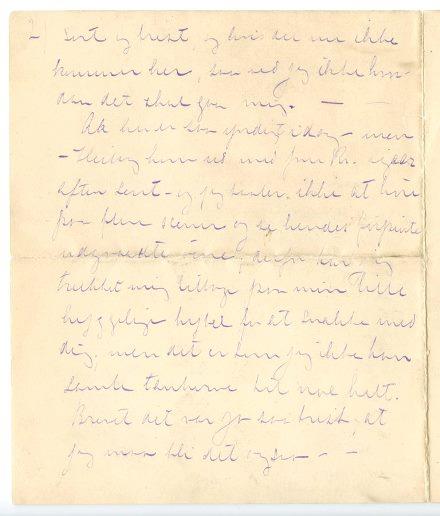 2 sort og trist, og hvis du nu ikke
kommer her, saa ved jeg ikke hvor-
dan det skal gaa mig. — —
Ak her er saa yndigt idag — men
- kom ud med fru Kr. igaar
aften sent - og jeg ikke at høre
paa flere scener og se hendes forpinte
derfor har jeg
trukket mig tilbage paa min lille
hyggelige hybel for at snakke med
dig, men det er som jeg ikke kan
samle tankerne til noe helt.
Brevet det var jo saa trist, at
jeg maa bli det ogsaa - -